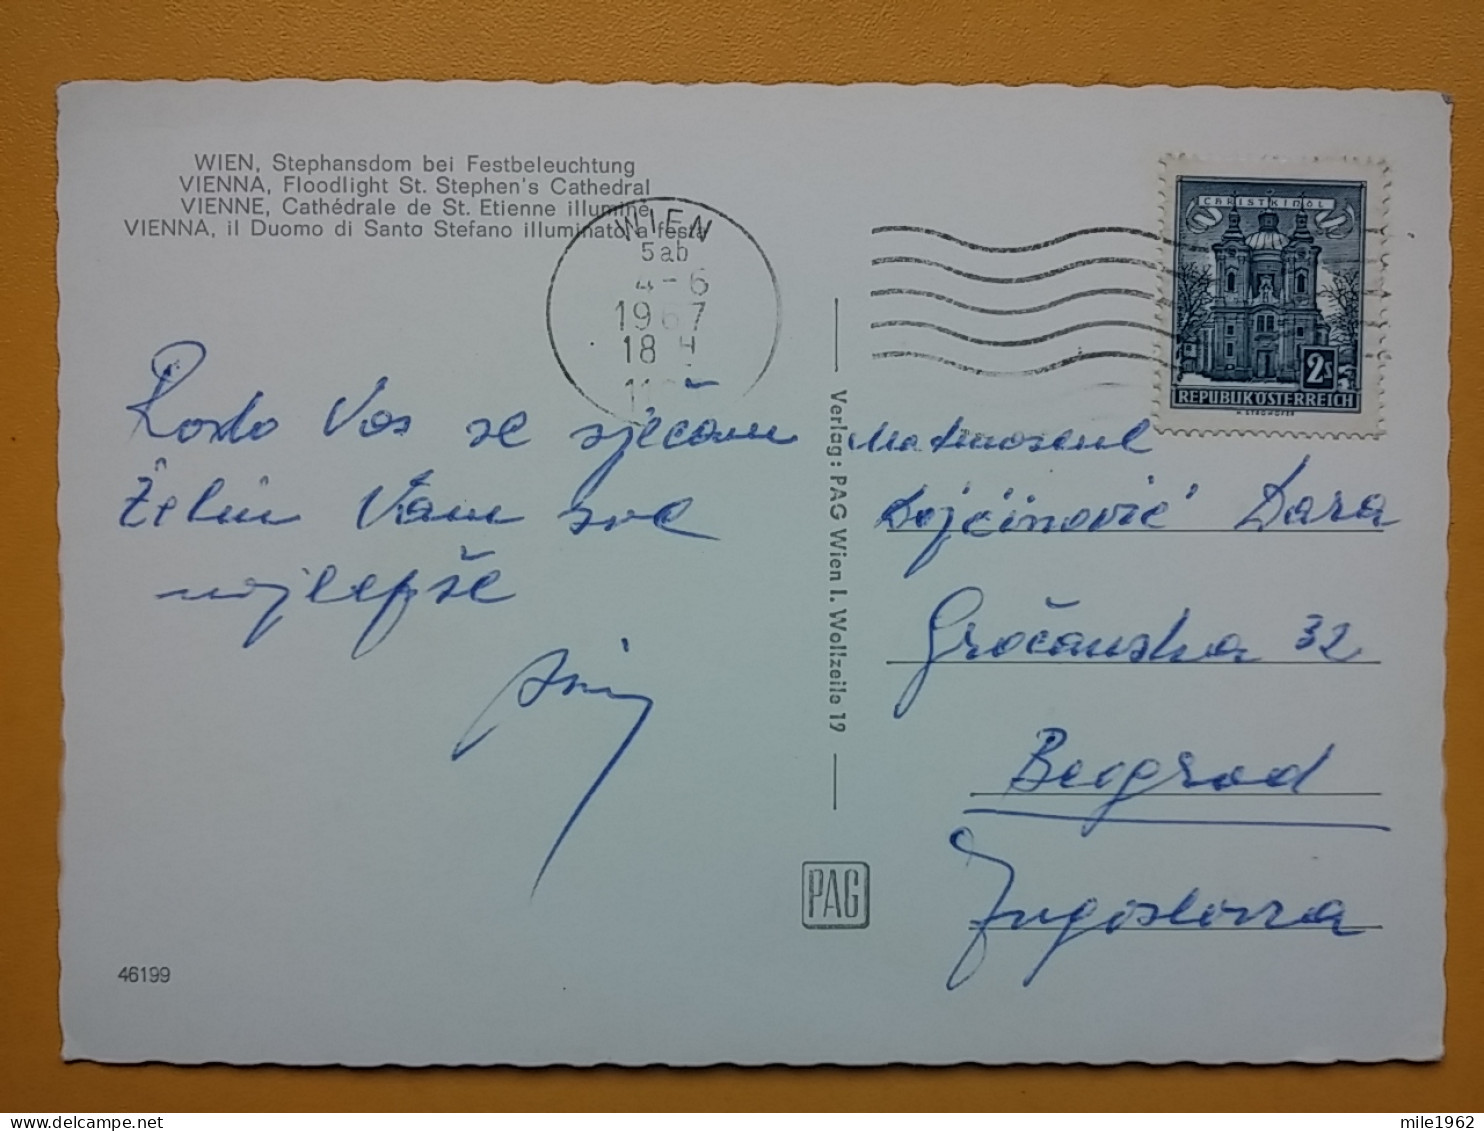 WIEN, Stephansdom bei Festbeleuchtung
VIENNA, Floodlight St. Stephen's Cathedral
VIENNE, Cathédrale de St. Etienne illuminé
VIENNA, il Duomo di Santo Stefano illuminato a festa
WIEN
5ab
4-6
1967
18 H
CHRISTKINDL
2S
REPUBLIK ÖSTERREICH
Rado Vas se sjećam
Želim Vam sve
najlepše
Verlag: PAG Wien I. Wollzeile 19
Dojčinović Dara
Gročanska 32
Beograd
Jugoslovia
PAG
46199
mile1962